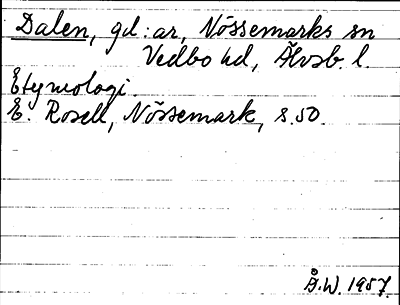 Dalen, gd:ar, Nössemarks sn
Vedbo hd, Älvsb. l.
Etymologi.
E. Rosell, Nössemark, s.50.
Å.W. 1957.